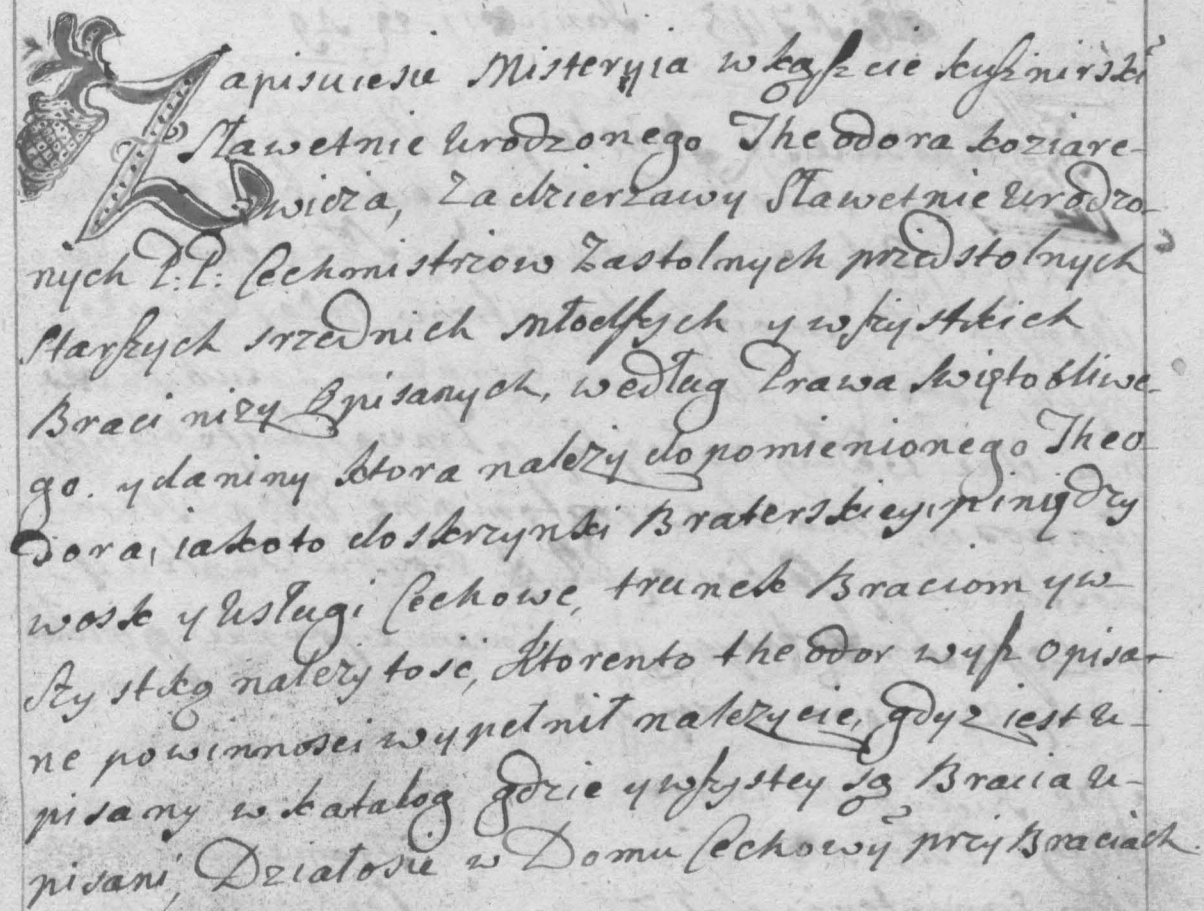 Zapisuiesie Misteryia w kąszcie kusznirskĩ
Sławetnie Urodzonego Theodora Koziare-
wicza, Za dzierzawy Sławetnie Urodzo-
nych P: P: Cechmistrzow Zastolnych przedstolnych
starszych srzednich młodszych y wszystkich
Braci nizy Opisanych, według Prawa Swiętobliwe-
go. y daniny ktora nalezy do pomienionego Theo-
dora, iakoto do skrzynki Braterskiey, piniędzy
wosk y Usługi Cechowe, trunek Braciom y w
szystkę nalezytosć, Ktorento theodor wysz opisa-
ne powinnosci wypełnił nalezycie, gdyz iest U-
pisany w katalog gdzie y wszystcy są Bracia U-
pisani, Działosie w Domu Cechowỹ przy Braciach.